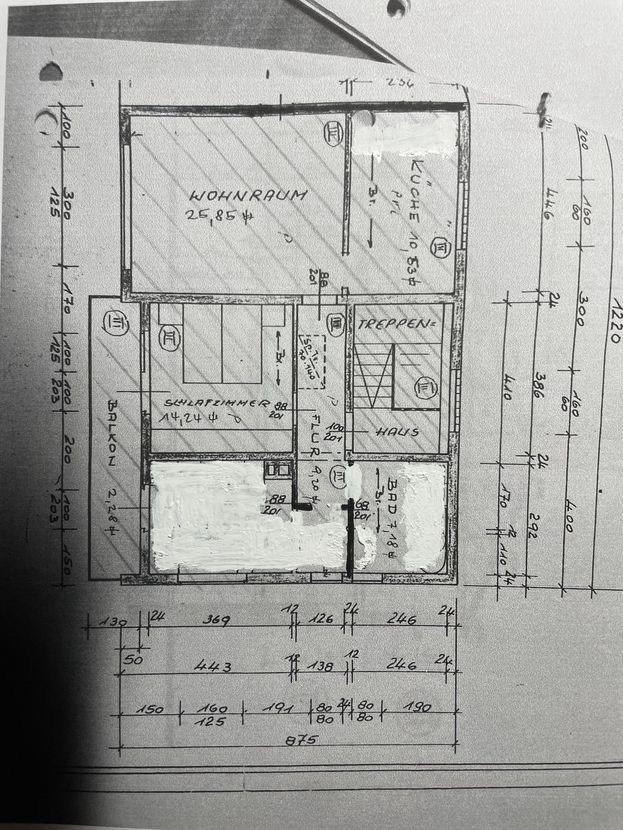 234
IV
WOHNRAUM
25,85
KÜCHE 10,83
Br.
IV
88
201
III
TREPPEN=
HAUS
III
SCHLAFZIMMER
14,24
Br.
88
201
FLUR 9,20
100
201
III
BALKON 2,28
88
201
68
201
BAD 7,18
Br.
100
300
125
170
100
125
100
203
200
100
203
150
24
446
24
386
24
292
24
410
170
12
110
200
160
60
300
160
60
400
1220
130
24
369
12
126
24
246
24
50
443
12
138
12
246
24
150
160
125
191
80
80
24
80
80
190
875